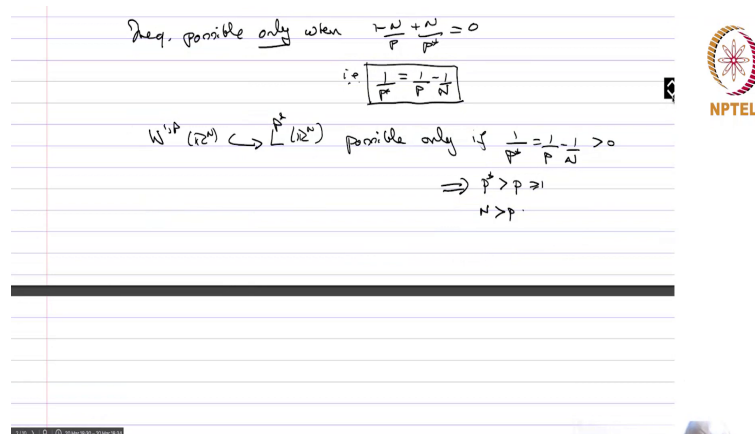 Ineq. possible only when 1-N/P + N/P* = 0
i.e. 1/P* = 1/P - 1/N
W^{1,P}(ℝ^N) ↪ L^{P*}(ℝ^N) possible only if 1/P* = 1/P - 1/N > 0
⟹ P* > P ≥ 1
N > P.
NPTEL